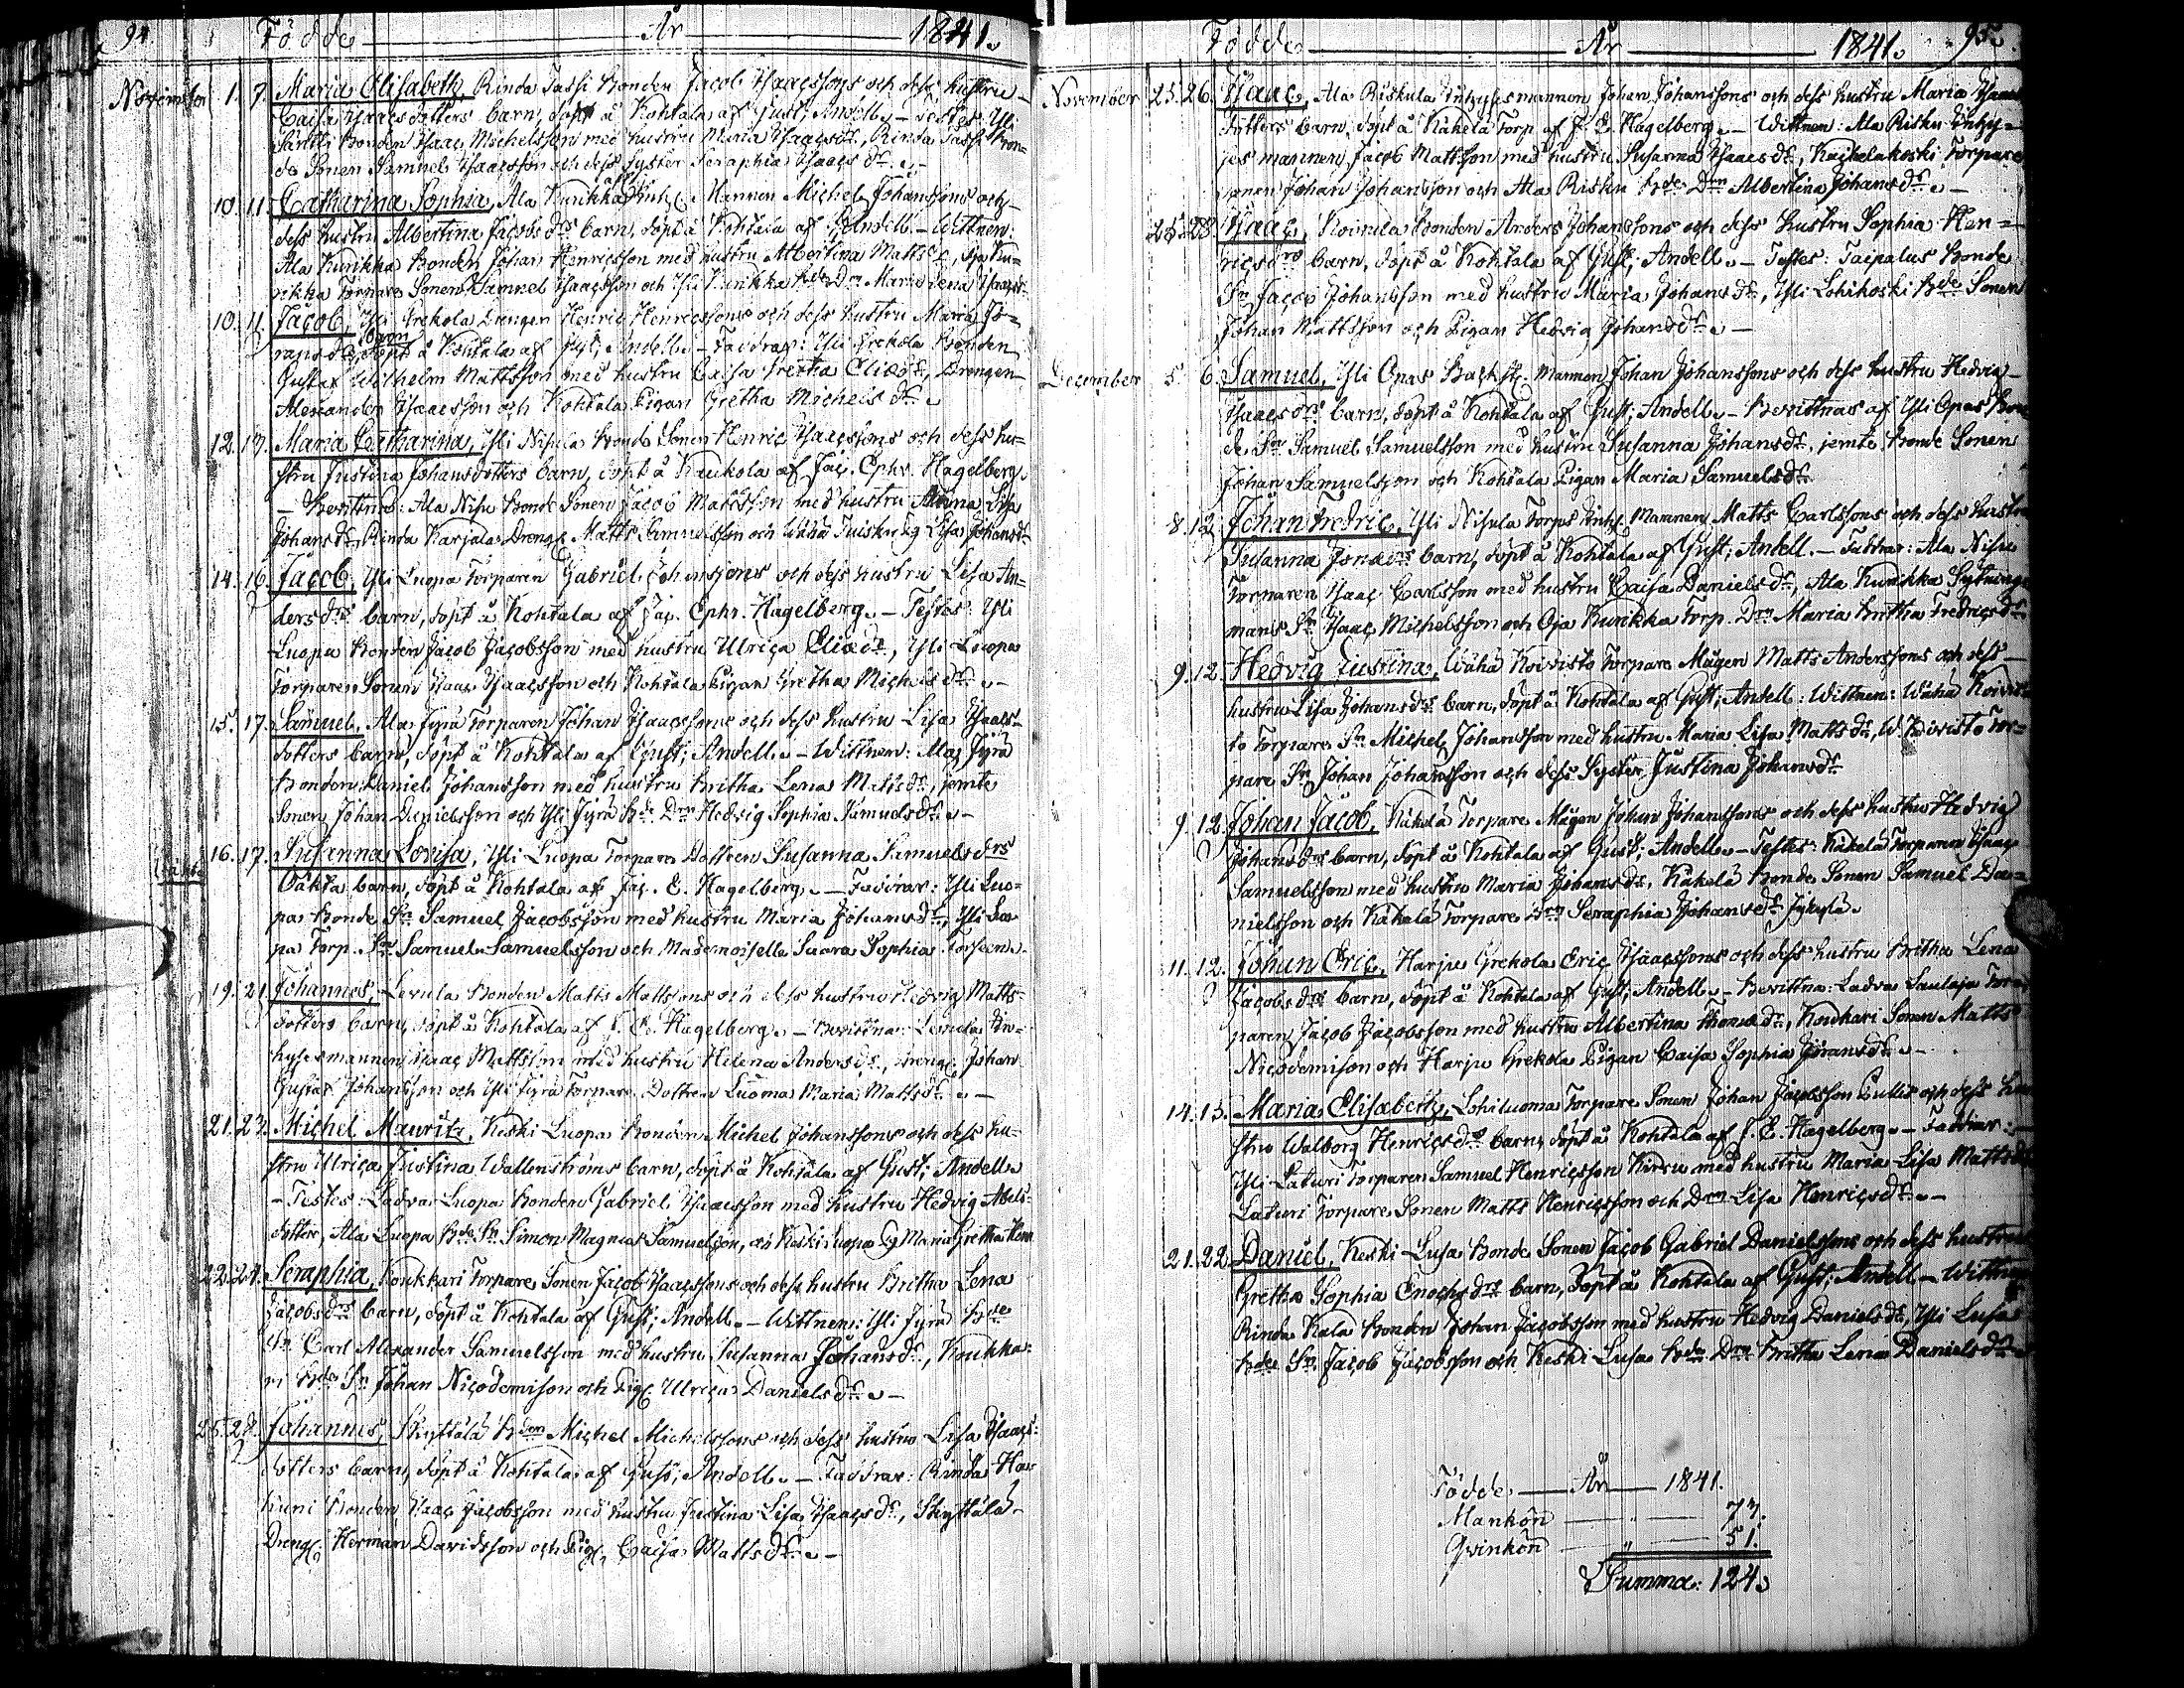 94. Födde År 1841.
November 1. 7. Maria Elisabeth, Rinda Passi Bonden Jacob Isaacssons och dess hustru
Caisa Isaacsdotters barn, döpt å Kohtala af Gust; Andell. – Testes: Yli
Säntti Bonden Isaac Michelsson med hustru Maria Isaacsdr, Rinda Passi Bon-
de Sonen Samuel Isaacsson och dess Syster Seraphia Isaacsdr. –
10. 11. Catharina Sophia, Ala Kurikka Mannen Michel Johanssons och
dess hustru Albertina Jacobsdrs barn, döpt å Kohtala af G. Andell. – Wittnen:
Ala Kurikka Bonden Johan Henricsson med hustru Albertina Mattsdr, Oja Ku-
rikka Torpare Sonen Samuel Isaacsson och Yli Kurikka Bde Drn Maria Lena Isaacsdr.
10. 11. Jacob, Yli Grekola Drengen Henric Henricssons och dess hustru Maria Jo-
barn
döpt å Kohtala af Gust; Andell. – Faddrar: Yli Grekola Bonden
Gustaf Wilhelm Mattsson med hustru Caisa Gretha Eliædr, Drengen
Alexander Isaacsson och Kohtala Pigan Gretha Michelsdr.
12. 17. Maria Catharina, Yli Nisula Bonde Sonen Henric Isaacssons och dess hu-
stru Justina Johansdotters barn, döpt å Kaukola af Jac. Ephr. Hagelberg.
– Bevittna: Ala Nisu Bonde Sonen Jacob Mattsson med hustru Anna Lisa
Johansdr, Rinda Karjala Dreng Matts Samuelsson och Wähä Tuisku Pig Lisa Johansdr
14. 16. Jacob, Yli Luopa Torparen Gabriel Johanssons och dess hustru Lisa An-
dersdrs barn, döpt å Kohtala af Jac. Ephr. Hagelberg. – Testes: Yli
Luopa Bonden Jacob Jacobsson med hustru Ulrica Eliædr, Yli Luopa
Torpare Sonen Isaac Isaacsson och Kohtala Pigan Gretha Michelsdr. –
15. 17. Samuel, Ala Jyrä Torparen Johan Isaacssons och dess hustru Lisa Isaacs-
dotters barn, döpt å Kohtala af Gust; Andell. – Wittnen: Ala Jyrä
Bonden Daniel Johansson med hustru Britha Lena Mattsdr, jemte
Sonen Johan Danielsson och Yli Jyrä Bde Drn Hedvig Sophia Samuelsdr. –
16. 17. Susanna Lovisa, Yli Luopa Torpare Dottren Susanna Samuelsdrs
Oäkta barn, döpt å Kohtala af Jac. E. Hagelberg. – Faddrar: Yli Luo-
pa Bonde Sn Samuel Jacobsson med hustru Maria Johansdr, Yli Luo-
pa Torp. Sn Samuel Samuelsson och Mademoiselle Saara Sophia Forsen.
19. 21. Johannes, Levula Bonden Matts Mattssons och dess hustru Hedvig Matts-
dotters barn, döpt å Kohtala af J. E. Hagelberg. – Bevittna: Levula In-
hysesmannen Isaac Mattsson med hustru Helena Andersdr, Dreng Johan
Gustaf Johansson och Yli Jyrä Torpare Dottren Luoma Maria Mattsdr. –
21. 23. Michel Mauritz, Keski Luopa Bonden Michel Johanssons och dess hu-
stru Ulrica Justina Wallenströms barn, döpt å Kohtala af Gust; Andell.
– Testes: Ladva Luopa Bonden Gabriel Isaacsson med hustru Hedvig Abels-
dotter, Ala Luopa Bde Sn Simon Magnus Samuelson, och Keski Luopa Pig Maria Gretha
22. 24. Seraphia, Koukkari Torpare Sonen Jacob Isaacssons och dess hustru Britha Lena
Jacobsdrs barn, döpt å Kohtala af Gust; Andell. – Wittnen: Yli Jyrä Bde
Sn Carl Alexander Samuelsson med hustru Susanna Johansdr, Koukka-
ri Bde Sn Johan Nicodemison och Pig Ulrica Danielsdr. –
25. 28. Johannes, Skyttälä Bden Michel Michelssons och dess hustru Lisa Isaacs-
dotters barn, döpt å Kohtala af Gust; Andell. – Faddrar: Rinda Ha-
huni Bonden Isaac Jacobsson med hustru Justina Lisa Isaacsdr, Skyttälä
Dreng Herman Davidsson och Pig Caisa Mattsdr. –
Födde År 1841. 95.
November 25. 26. Isaac, Ala Riskula Inhysesmannen Johan Johanssons och dess hustru Maria Isaacs
dotters barn, döpt å Käkelä Torp af J. E. Hagelberg. – Wittnen: Ala Risku Inhy-
sesmannen Jacob Mattsson med hustru Susanna Isaacsdr, Kackelakoski Torpare
sonen Johan Johansson och Ala Risku Bde Drn Albertina Johansdr. –
25. 28. Isaac, Koivula Bonden Anders Johanssons och dess hustru Sophia Hen-
ricsdrs barn, döpt å Kohtala af Gust; Andell. – Testes: Taipalus Bonde
Sn Jacob Johansson med hustru Maria Johansdr, Yli Lohikoski Bde Sonen
Johan Mattsson och Pigan Hedvig Johansdr. –
December 5. 6. Samuel, Yli Opas Backst. Mannen Johan Johanssons och dess hustru Hedvig
Isaacsdrs barn, döpt å Kohtala af Gust; Andell. – Bevittnas af Yli Opas Bon
de Sn Samuel Samuelsson med hustru Susanna Johansdr, jemte Bonde Sonen
Johan Samuelsson och Kohtala Pigan Maria Samuelsdr
8. 12. Johan Fredric, Yli Nisula Torps Inh. Mannen Matts Carlssons och dess hustru
Susanna Jonædrs barn, döpt å Kohtala af Gust; Andell. – Faddrar: Ala Nisu
Torparen Isaac Carlsson med hustru Caisa Danielsdr, Ala Kurikka Sytnings
mans Sn Isaac Michelsson och Oja Kurikka Torp. Drn Maria Britha Fredricsdr
9. 12. Hedvig Justina, Wähä Koivisto Torpare Mågen Matts Anderssons och dess
hustru Lisa Johansdrs barn, döpt å Kohtala af Gust; Andell: Wittnen: Wähä Koivis
to Torpare Sn Michel Johansson med hustru Maria Lisa Mattsdr, W. Koivisto Tor-
pare Sn Johan Johansson och dess Syster Justina Johansdr
9. 12. Johan Jacob, Käkelä Torpare Mågen Johan Johanssons och dess hustru Hedvig
Johansdrs barn, döpt å Kohtala af Gust; Andell. – Testes: Käkelä Torparen Isaac
Samuelsson med hustru Maria Johansdr, Käkelä Bonde Sonen Samuel Da-
nielsson och Käkelä Torpare Drn Seraphia Johansdr Jykylä.
11. 12. Johan Eric, Harju Grekola Eric Isaacssons och dess hustru Britha Lena
Jacobsdrs barn, döpt å Kohtala af Gust; Andell. – Bevittna: Ladva Laulaja Tor
paren Jacob Jacobsson med hustru Albertina Thomædr, Koukari Sonen Matts
Nicodemison och Harju Grekola Pigan Caisa Sophia Johansdr. –
14. 15. Maria Elisabeth, Lohiluoma Torpare Sonen Johan Jacobsson Cullis och dess hu
stru Walborg Henricsdrs barn, döpt å Kohtala af J. E. Hagelberg. – Faddrar:
Yli Laturi Torparen Samuel Henricsson Kirsu med hustru Maria Lisa Mattsdr
Laturi Torpare Sonen Matts Henricsson och Drn Lisa Henricsdr. –
21. 22. Daniel, Keski Lusa Bonde Sonen Jacob Gabriel Danielssons och dess hustru
Gretha Sophia Enochsdrs barn, döpt å Kohtala af Gust; Andell – Wittnen
Rinda Kala Bonden Johan Jacobsson med hustru Hedvig Danielsdr, Yli Lusa
Bde Sn Jacob Jacobsson och Keski Lusa Bde Drn Britha Lena Danielsdr
Födde År 1841.
Mankön " 73.
Qvinkön " 51.
Summa: 124.